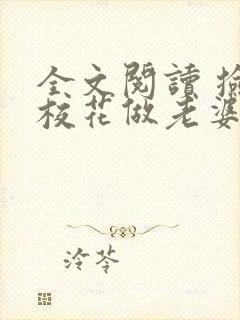 全文閱讀 撿
校花做老婆
泠苓